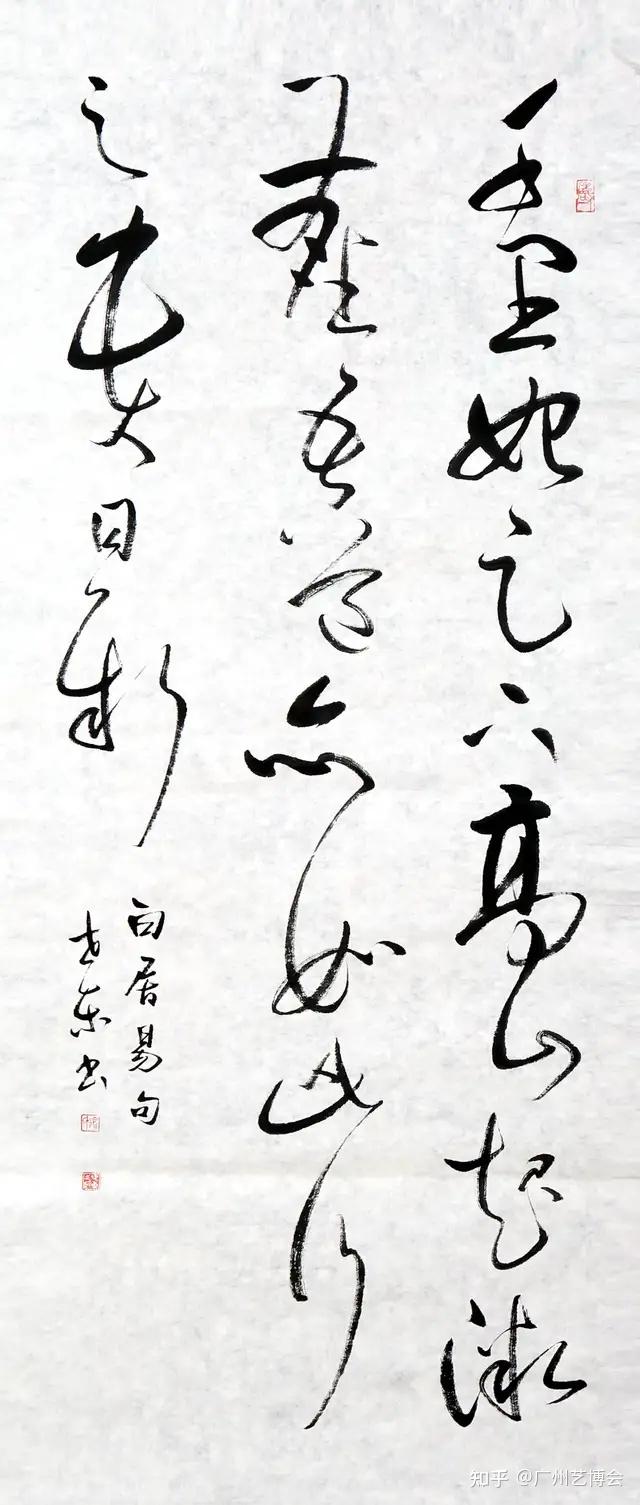 千里始足下高山起微
塵吾道亦如此行
之貴日新
白居易句
書
知乎 @广州艺博会